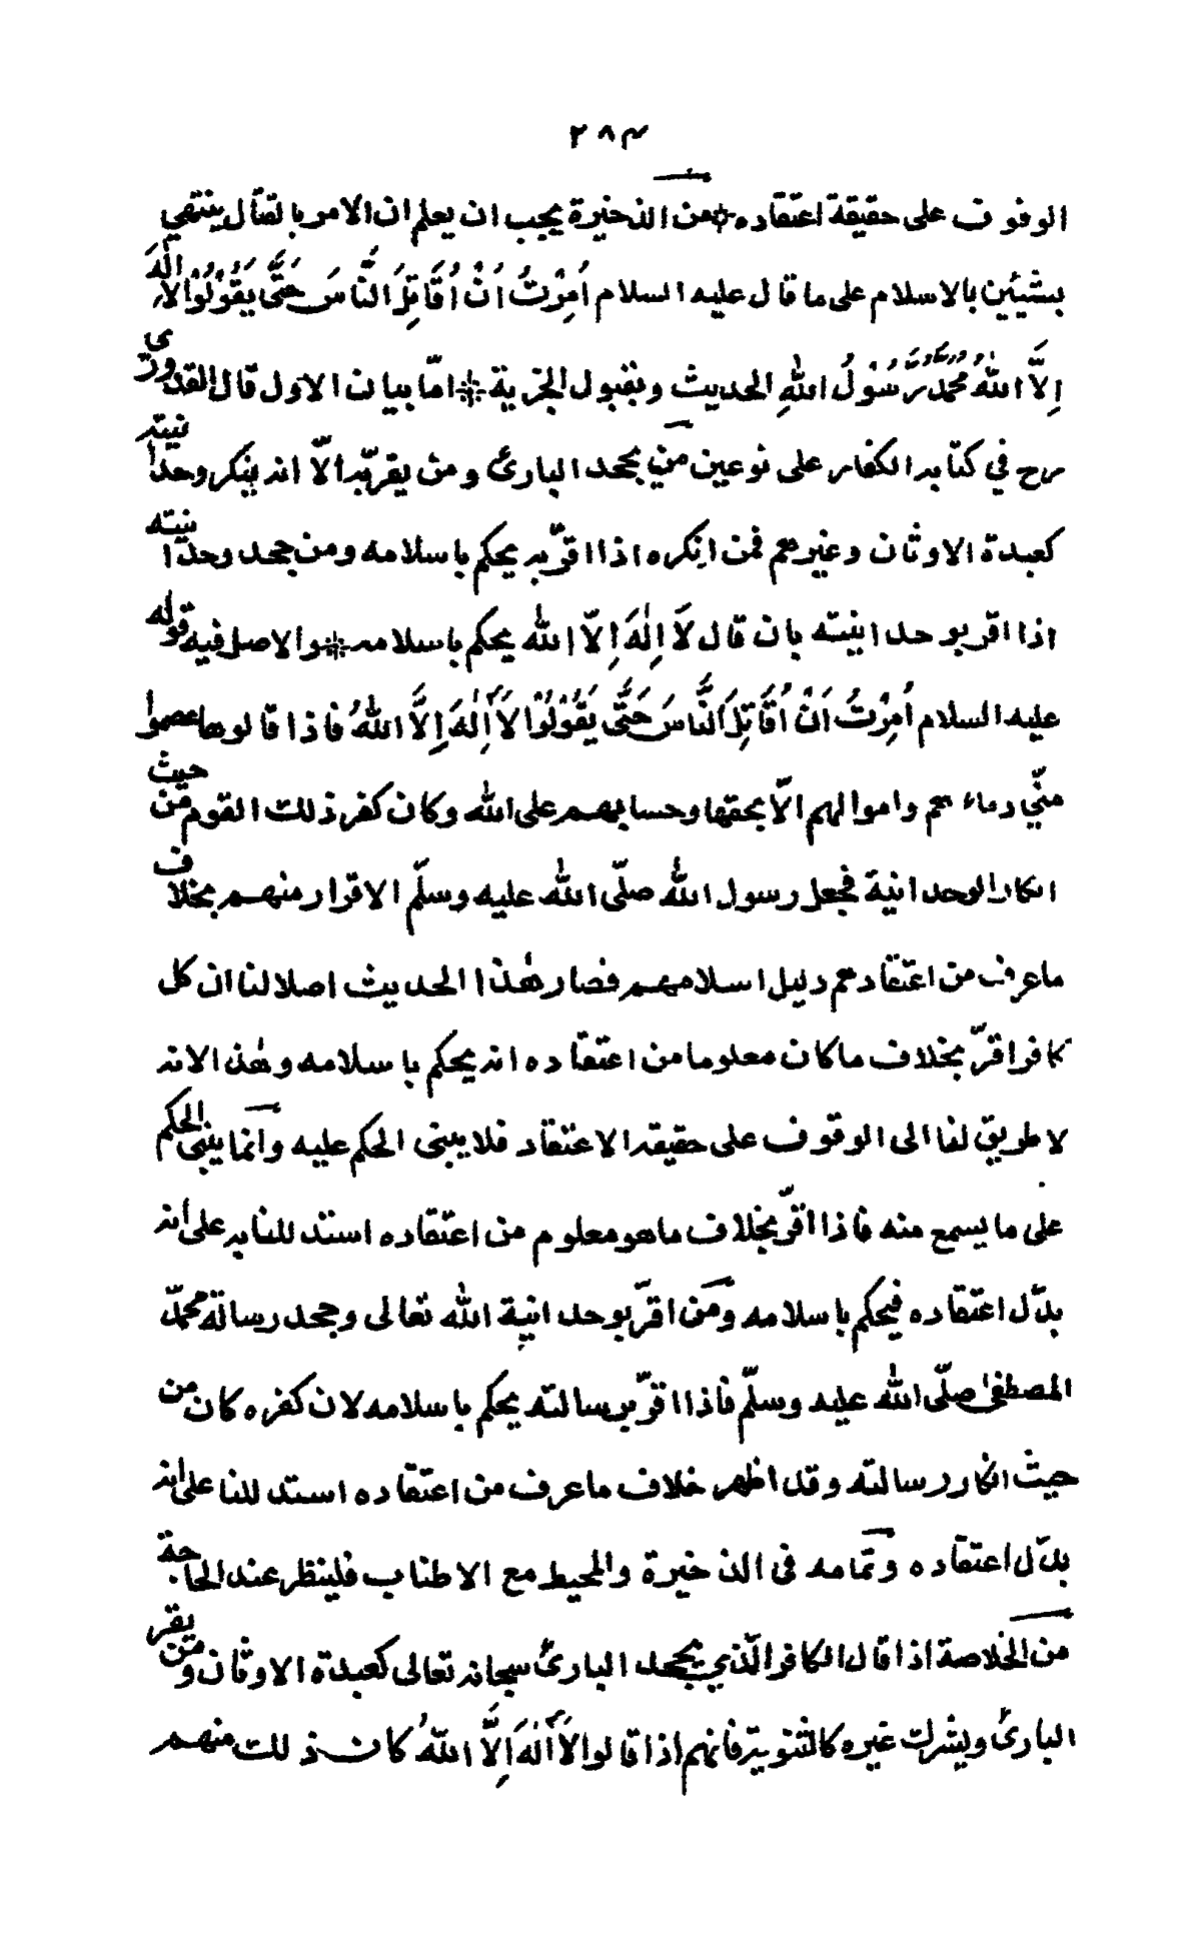 ٢٨٤
الوقوف على حقيقة اعتقاده ※ من الذخيرة يجب ان يعلم ان الامر بالقتال ينتهي
بشيئين بالاسلام على ما قال عليه السلام اُمِرْتُ اَنْ اُقَاتِلَ النَّاسَ حَتَّى يَقُوْلُوْا لَا اِلٰهَ
اِلَّا اللهُ مُحَمَّدٌ رَّسُوْلُ اللهِ الحديث وبقبول الجزية ※ امّا بيان الاول قال القدوري
رح في كتابه الكفار على نوعين من يجحد البارئ و من يقرّ به الّا انه ينكر وحدانيته
كعبدة الاوثان وغيرهم فمن انكره اذا اقرّ به يحكم باسلامه ومن جحد وحدانيته
اذا اقر بوحدانيته بان قال لَا اِلٰهَ اِلّا الله يحكم باسلامه ※ والاصل فيه قوله
عليه السلام اُمِرْتُ اَنْ اُقَاتِلَ النَّاسَ حَتَّى يَقُوْلُوْا لَا اِلٰهَ اِلَّا اللهُ فاذا قالوها عصموا
منّي دماءهم واموالهم الّا بحقها وحسابهم على الله وكان كفر ذلك القوم من حيث
انكار الوحدانية فجعل رسول الله صلّى الله عليه وسلّم الاقرار منهم بخلاف
ما عرف من اعتقادهم دليل اسلامهم فصار هٰذا الحديث اصلا لنا ان كل
كافر اقرّ بخلاف ما كان معلوما من اعتقاده انه يحكم باسلامه وهٰذا لانه
لا طريق لنا الى الوقوف على حقيقة الاعتقاد فلا يبنى الحكم عليه وانما يبنى الحكم
على ما يسمع منه فاذا اقرّ بخلاف ما هو معلوم من اعتقاده استدللنا به على انه
بدّل اعتقاده فيحكم باسلامه ومن اقرّ بوحدانية الله تعالى وجحد رسالة محمّد
المصطفٰى صلّى الله عليه وسلّم فاذا اقرّ برسالته يحكم باسلامه لان كفره كان من
حيث انكار رسالته وقد اظهر خلاف ما عرف من اعتقاده استدللنا على انه
بدّل اعتقاده وتمامه فى الذخيرة والمحيط مع الاطناب فلينظر عند الحاجة
من الخلاصة اذا قال الكافر الّذي يجحد البارئ سبحانه تعالى كعبدة الاوثان ومن يقر
البارئ ويشرك غيره كالثنوية فانهم اذا قالوا لَا اِلٰهَ اِلَّا اللهُ كان ذلك منهم